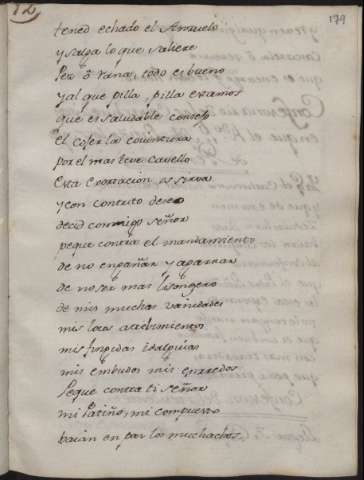 12
179
tened echado el Anzuelo
y salga lo que saliere
Pez o Rana, todo es bueno
y al que pilla, pilla vamos
que es saludable consejo
el coser la couuntura
por el mas leve cavello
esta exortación os sirva
y con contrito deseo
decid conmigo Señor
peque contra el mandamiento
de no engañar y aparnar
de no ser mas lisongero
de mis muchas vanidades
mis locos atrebimientos
mis fingidas
mis embudos mis enredos
Peque contra ti Señor
mi Patiño, mi compuesto
bacian en par los muchachos